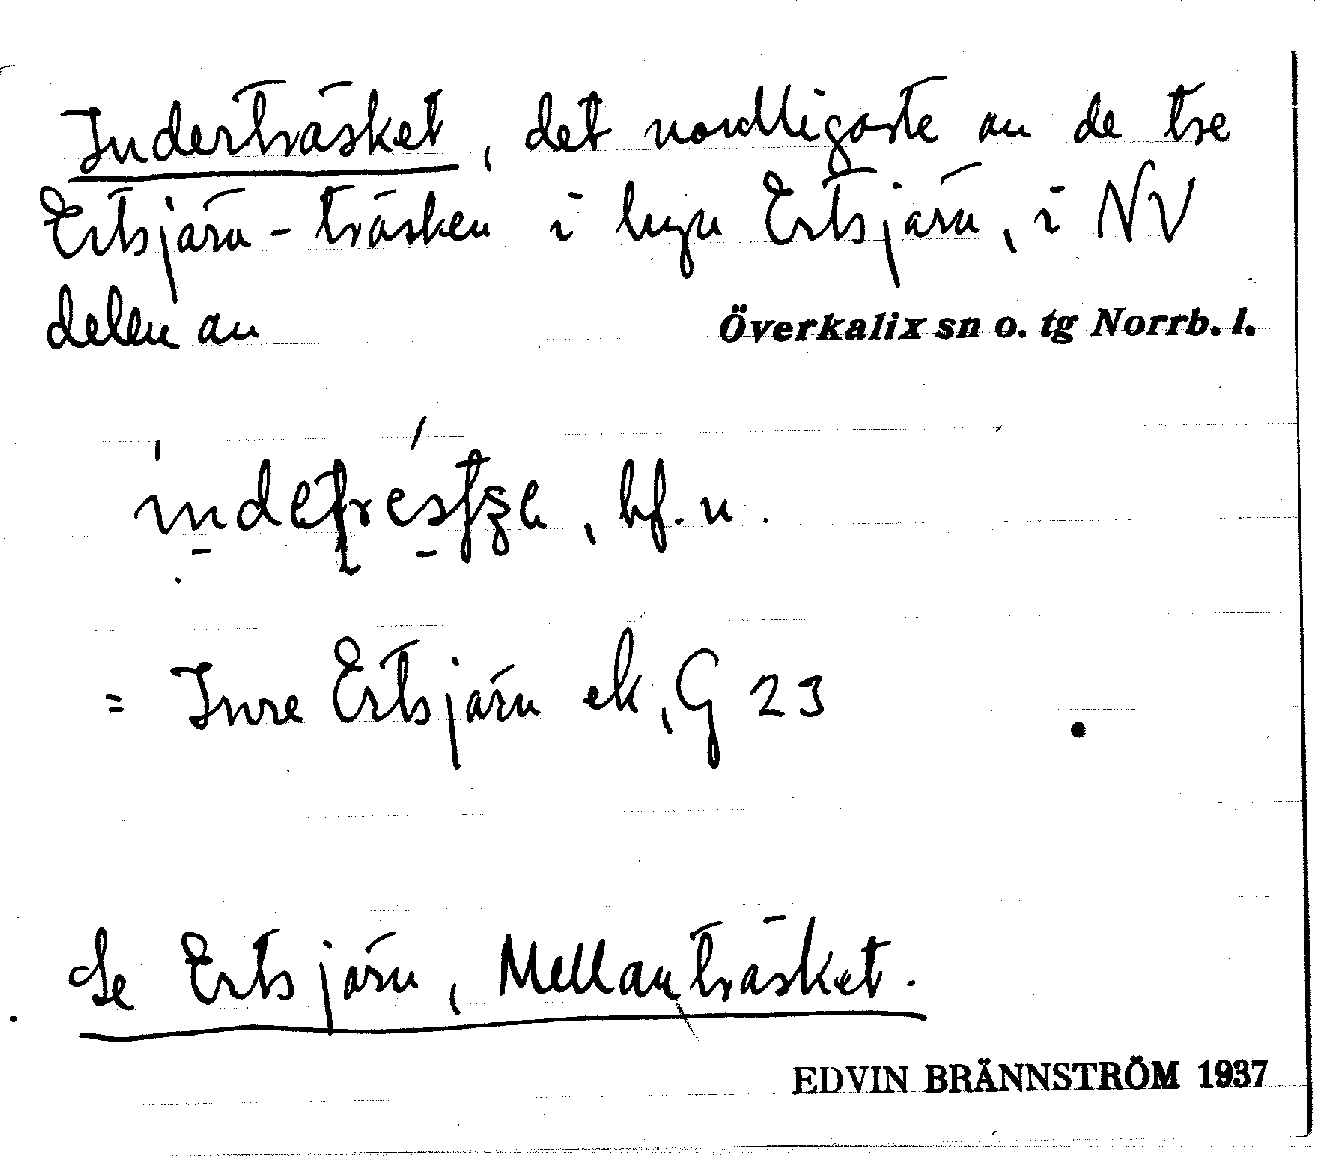 Inderträsket, det nordligaste av de tre
Ertsjärv-träsken i byn Ertsjärv, i NV
delen av Överkalix sn o. tg Norrb. l.
bf. n.
= Inre Ertsjärv ek, G 23
Se Ertsjärv, Mellanträsket.
EDVIN BRÄNNSTRÖM 1937